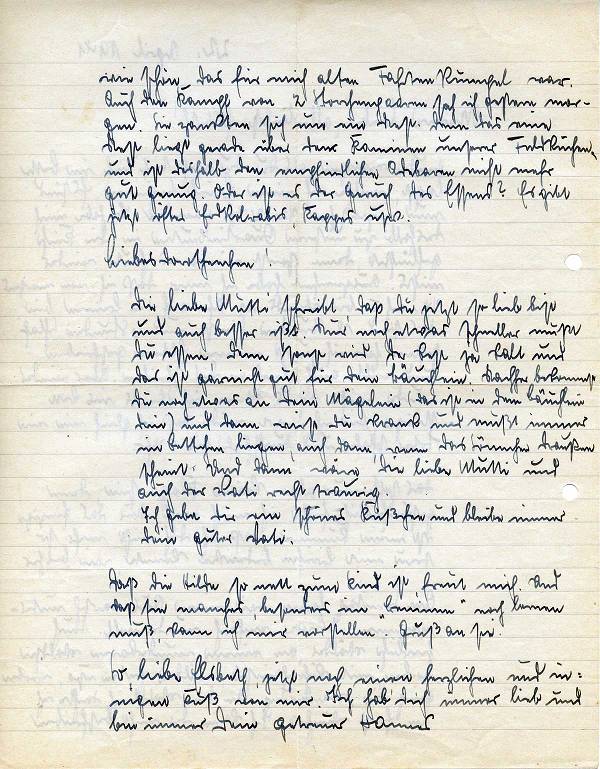 wie schön das für mich alten Fahrten Kumpel war.
Auch den Kampf von 2 Storchenpaaren sah ich gestern mor-
gen. Sie zankten sich um ein Nest. Denn das eine
Nest liegt gerade über dem Kamin unserer Feldküchen
und ist deshalb den empfindlichen Adebaren nicht mehr
gut genug. Oder ist es der Geruch des Essens? Es gibt
jetzt öfter Erdkohlrabis, Kappes usw.
Liebes Dorthchen!
Die liebe Mutti schreibt, daß Du jetzt so lieb bist
und auch besser ißt. Nur noch etwas schneller mußt
Du essen. Denn sonst wird der Rest ja kalt und
das ist garnicht gut für dein Bäuchlein. Nachher bekommst
Du noch etwas an Dein Mägelein (das ist in dem Bäuchlein
drin) und dann wirst Du krank und mußt immer
im Bettchen liegen, auch dann, wenn das Sönnchen draußen
scheint. Und dann wären die liebe Mutti und
auch der Vati recht traurig.
Ich gebe dir ein schönes Küßchen und bleibe immer
Dein guter Vati.
Daß die Hilde so nett zum Kind ist, freut mich. Und
daß sie manches besonders im "Benimm" noch lernen
muß, kann ich mir vorstellen. Gruß an sie.
So, liebe Elsbeth, jetzt noch einen herzlichen und in-
nigen Kuß von mir. Ich hab Dich immer lieb und
bin immer Dein getreuer Hannes